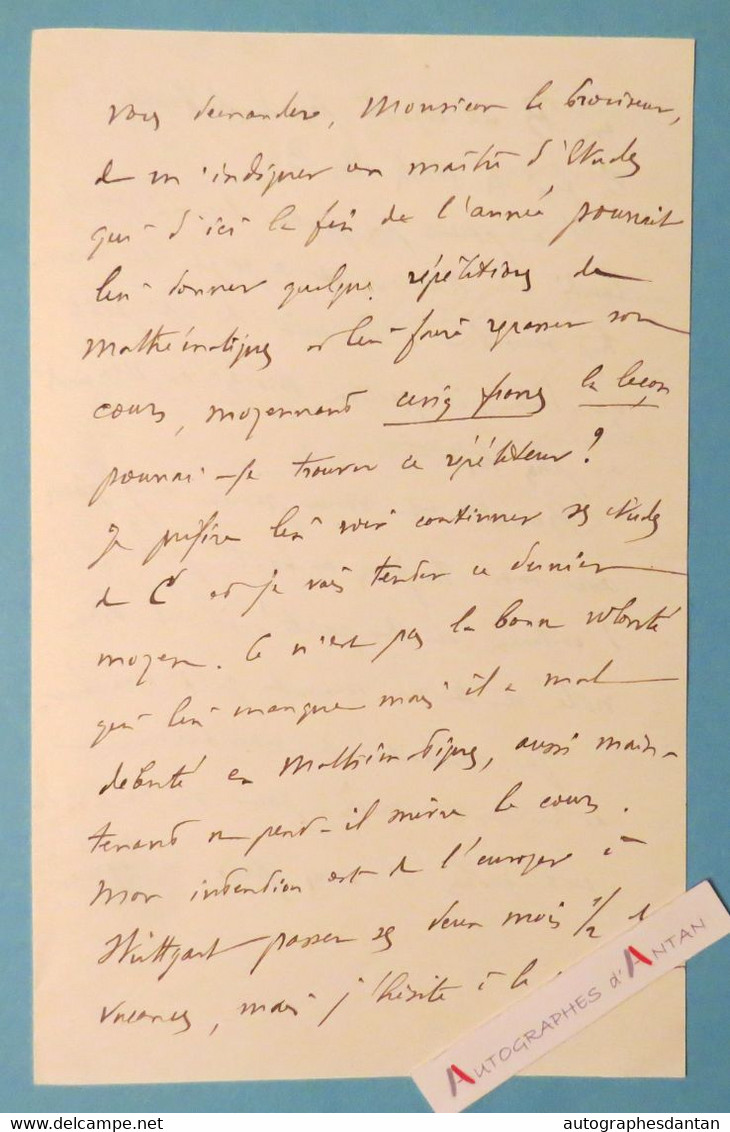 vous demander, Monsieur le Proviseur,
de m'indiquer un maître d'études
qui d'ici la fin de l'année pourrait
lui donner quelques répétitions de
mathématiques et lui faire repasser son
cours, moyennant cinq francs la leçon
pourrai-je trouver ce répétiteur?
Je préfère lui voir continuer ses études
de C et je vais tenter ce dernier
moyen. Ce n'est pas la bonne volonté
qui lui manque mais il a mal
débuté en Mathématiques, aussi main-
tenant ne peut-il suivre le cours.
Mon intention est de l'envoyer à
Stuttgart passer ses deux mois 1/2 de
vacances, mais j'hésite à le
AUTOGRAPHES d'ANTAN
delcampe.net
autographesdantan